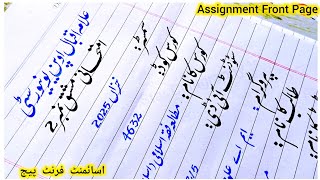 Assignment Front Page
علامہ اقبال اوپن یونیورسٹی
امتحانی مشق نمبر 2
سمسٹر: خزاں 2025
کورس کوڈ: 4632
کورس کا نام: مطالعہ فقہ اسلامی
سٹوڈنٹ آئی ڈی:
پروگرام: ایم اے
طالب کا نام:
اسائنمنٹ فرنٹ پیج